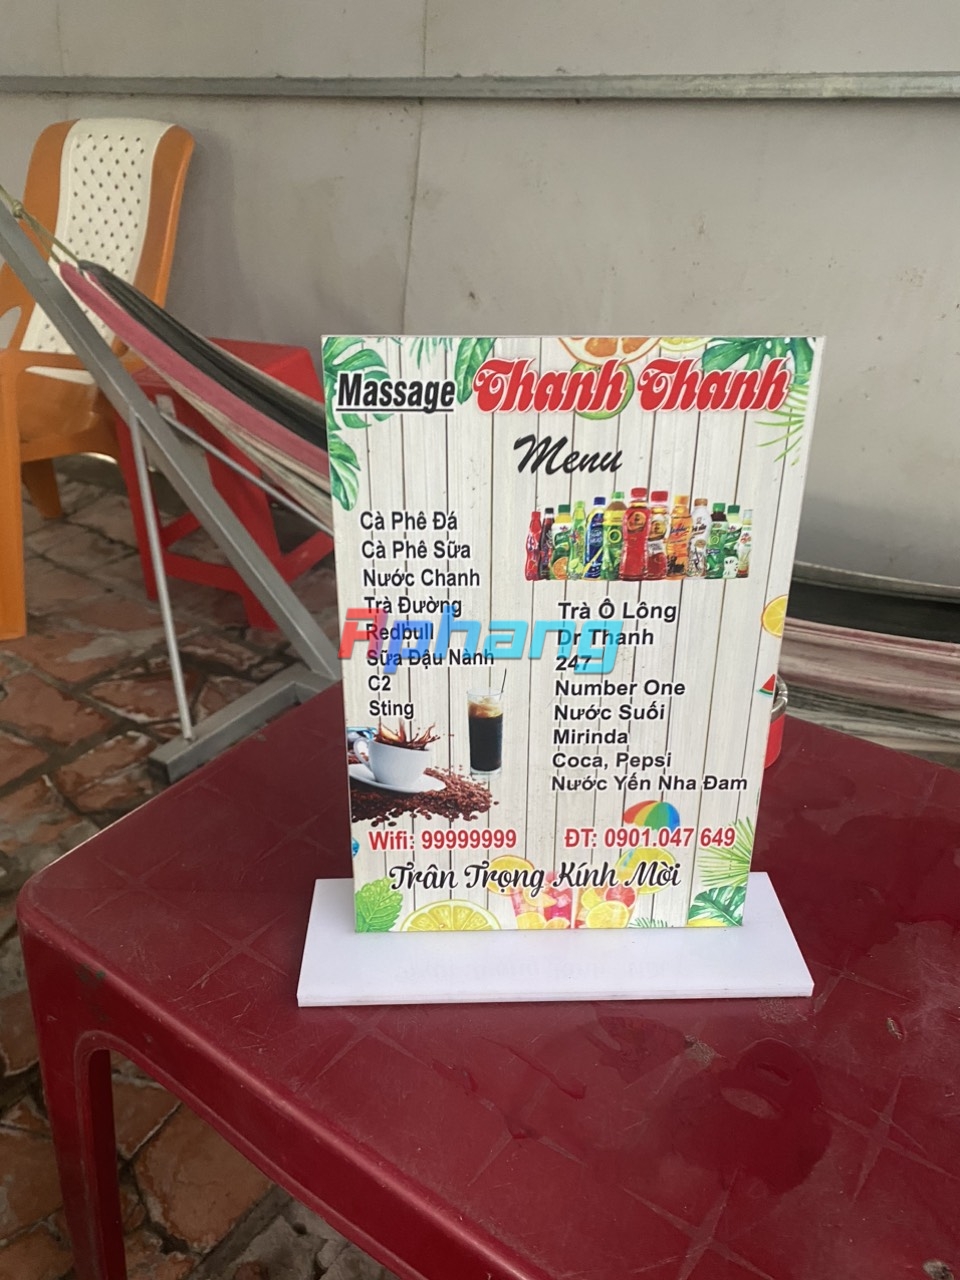 Massage Thanh Thanh
Menu
Cà Phê Đá
Cà Phê Sữa
Nước Chanh
Trà Đường
Redbull
Sữa Đậu Nành
C2
Sting
Trà Ô Lông
Dr Thanh
247
Number One
Nước Suối
Mirinda
Coca, Pepsi
Nước Yến Nha Đam
Aphang
Wifi: 99999999
ĐT: 0901.047 649
Trân Trọng Kính Mời